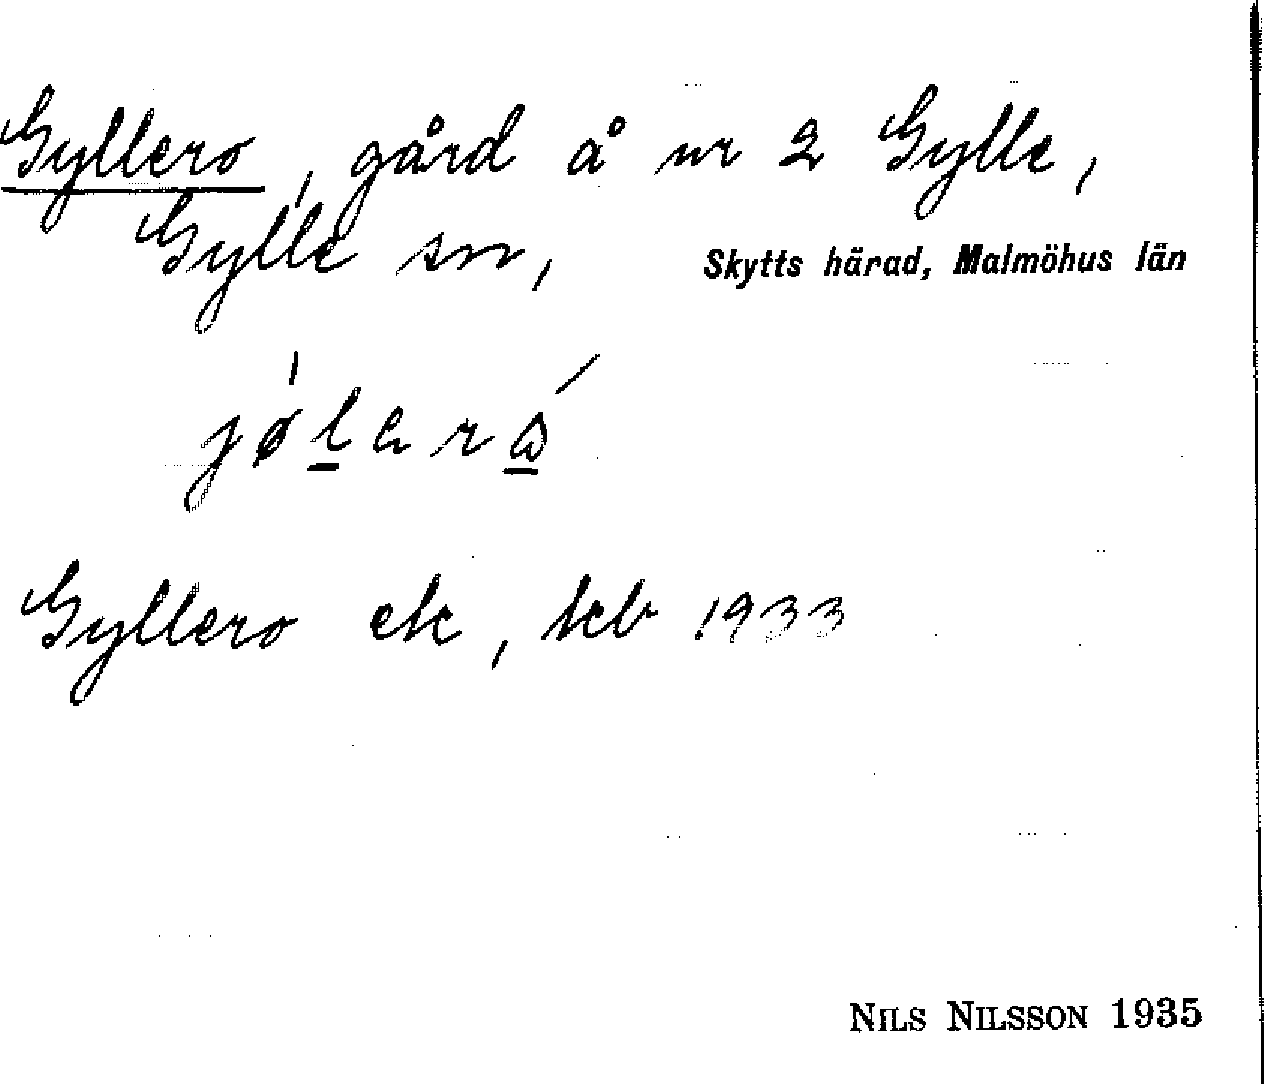 Gyllero, gård å nr 2 Gylle,
Gylle sn, Skytts härad, Malmöhus län
Gyllero ek, kb 1933
NILS NILSSON 1935